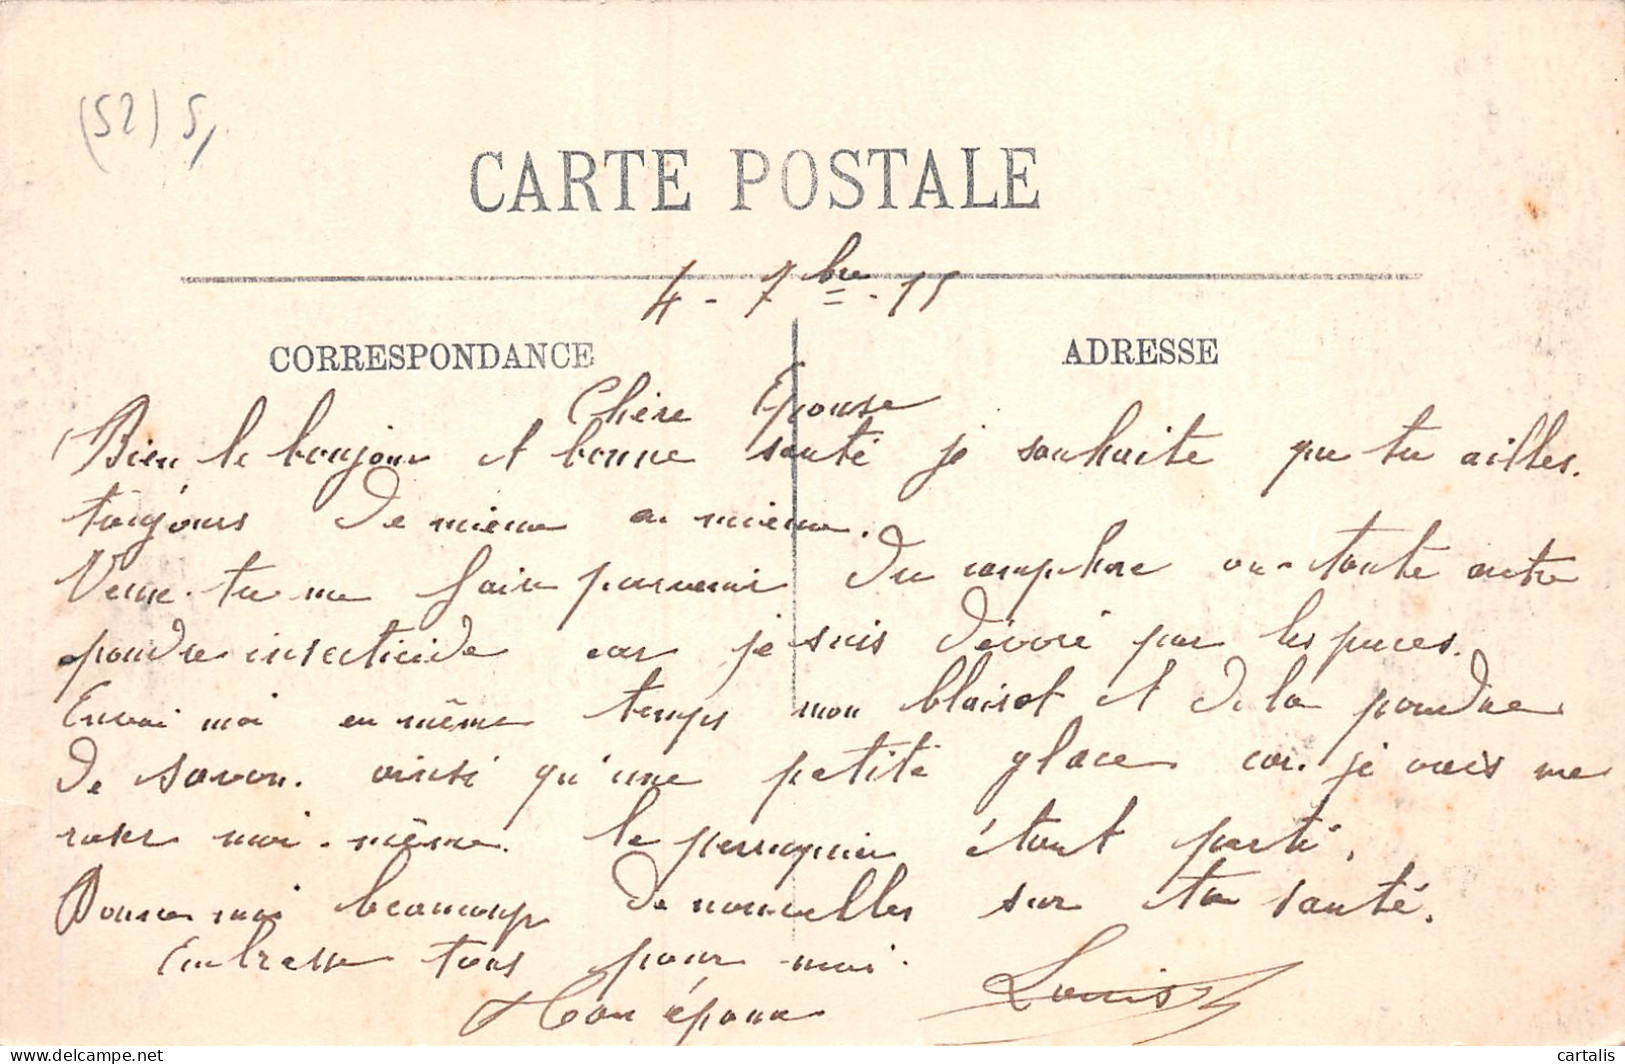 (52) 5,
CARTE POSTALE
4 - 7bre - 15
CORRESPONDANCE
ADRESSE
Chère Epouse
Bien le bonjour et bonne santé je souhaite que tu ailles.
toujours de mieux en mieux.
Veux-tu me faire parvenir du camphre ou toute autre
poudre insecticide car je suis dévoré par les puces.
Envoi moi en même temps mon blairot et de la poudre
de savon. ainsi qu'une petite glace car je vais me
raser moi-même. le perruquier étant parti.
Donne moi beaucoup de nouvelles sur ta santé.
Embrasse tous pour moi.
Ton époux Louis
cartalis